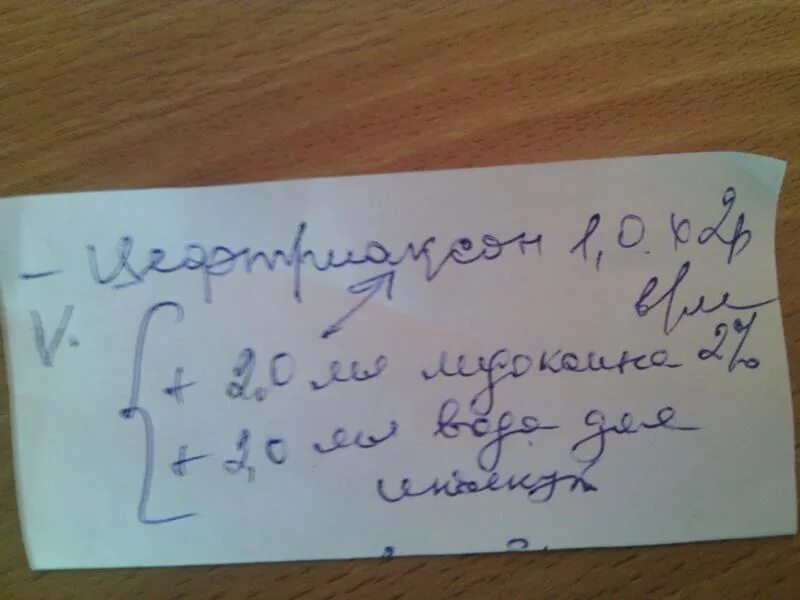 - Цефтриаксон 1,0 х 2р
в/м
V.
+ 2,0 мл лидокаина 2%
+ 2,0 мл вода для
инъекц